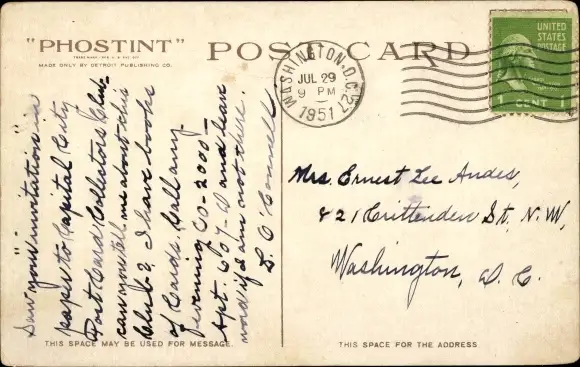 "PHOSTINT" POST CARD
TRADE MARK
MADE ONLY BY DETROIT PUBLISHING CO.
WASHINGTON, D.C. 27
JUL 29
9 PM
1951
UNITED
STATES
POSTAGE
1 CENT 1
Saw your "invitation" in
paper to Capital City
Post Card Collectors Club.
Can you tell me about this
Club? I have books
of Cards. Call any
evening CO-2000-
Apt. 607-D and leave
word if I am not there.
L. O'Connell
Mrs. Ernest Lee Andes,
821 Crittenden St. N.W,
Washington, D.C.
THIS SPACE MAY BE USED FOR MESSAGE.
THIS SPACE FOR THE ADDRESS